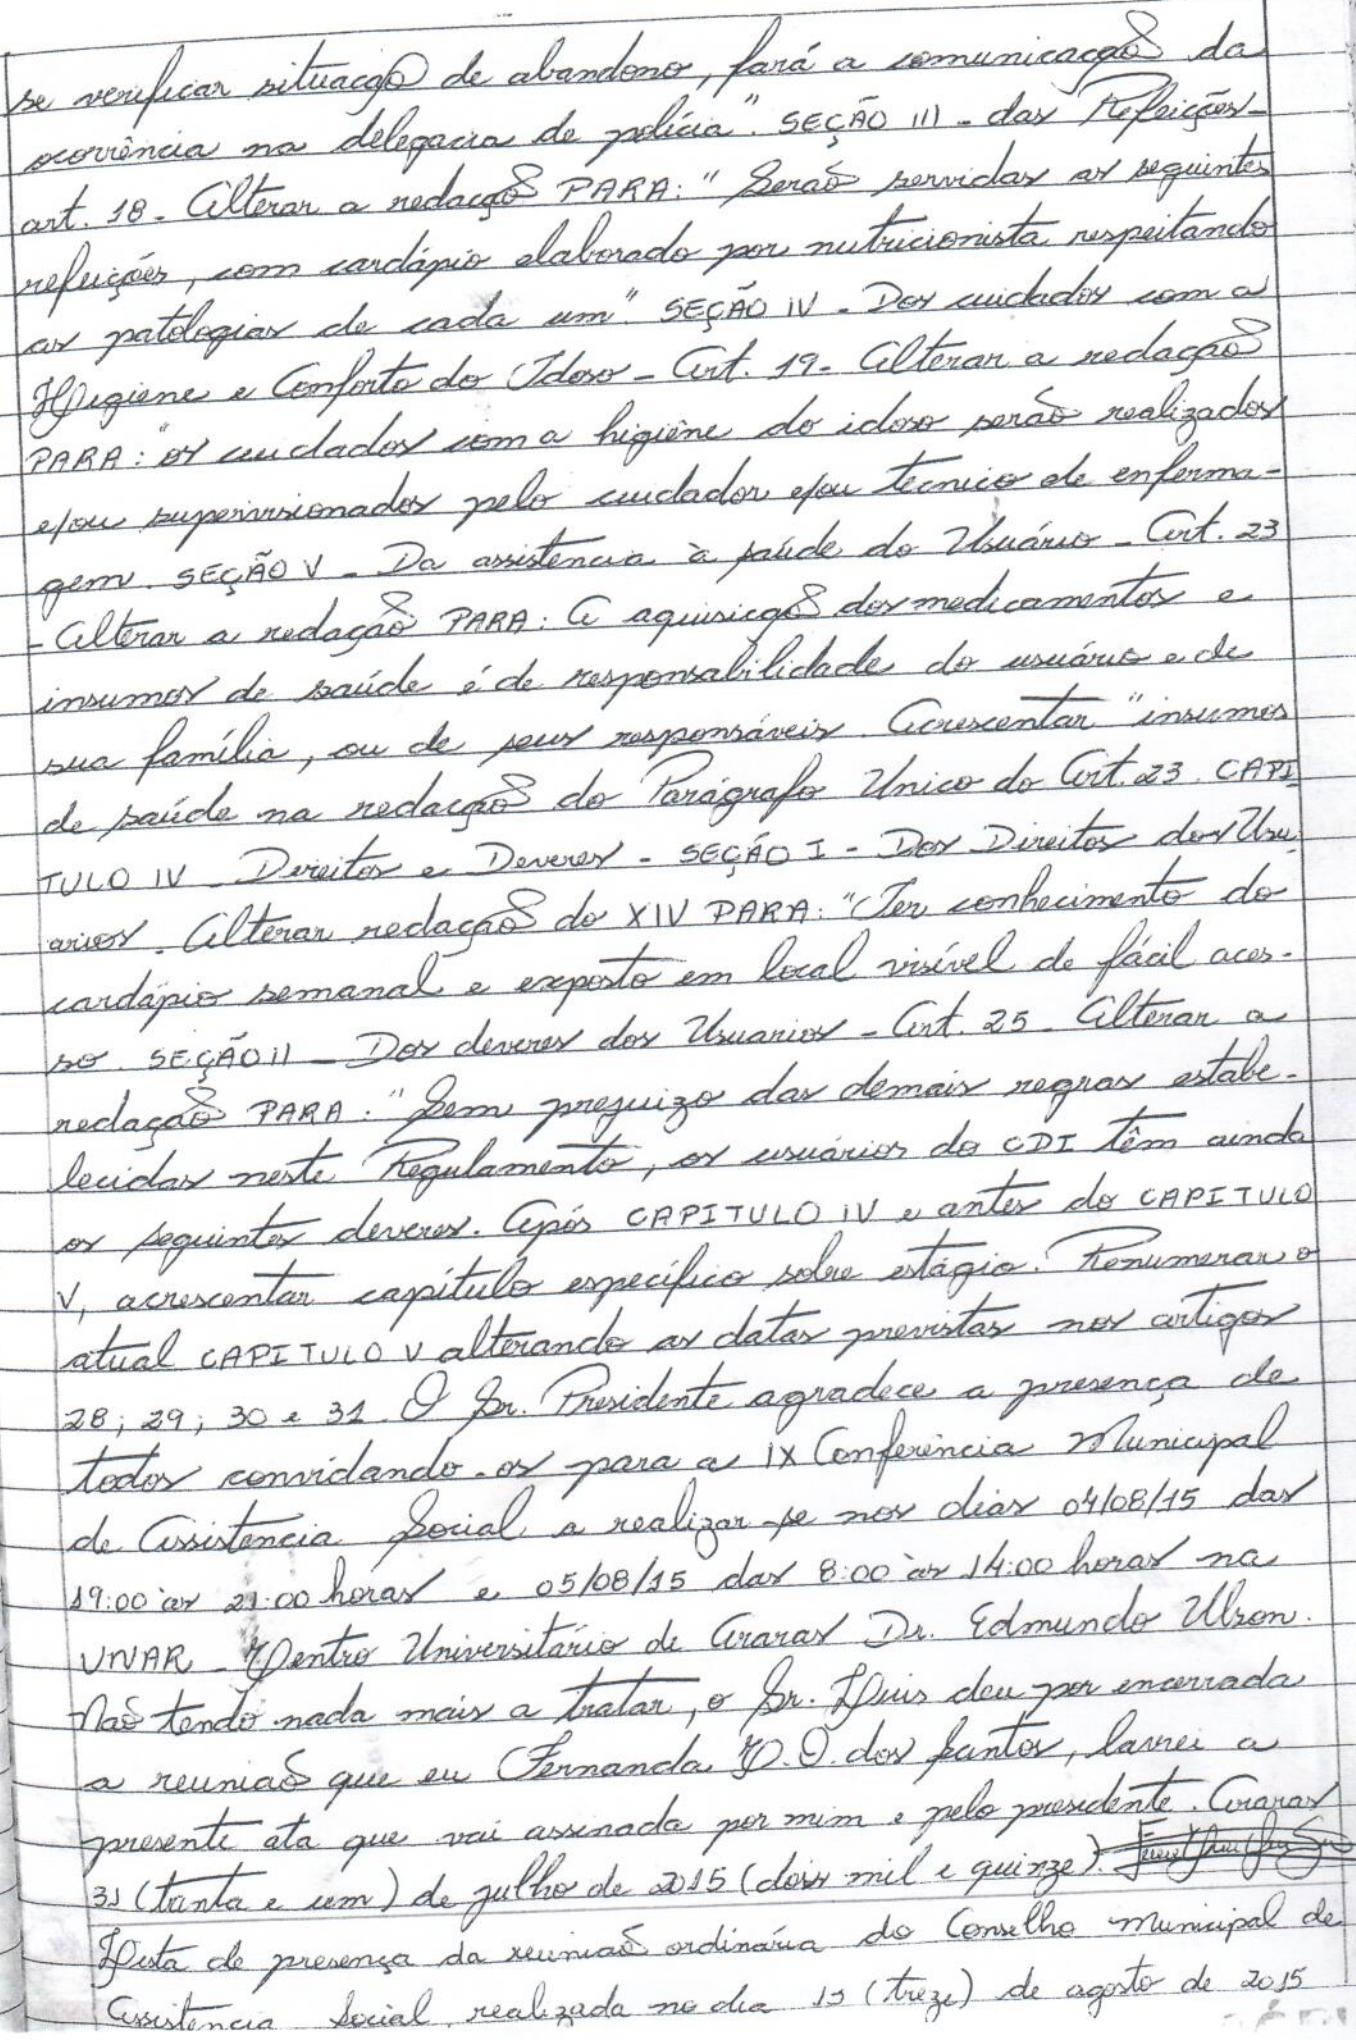 se verificar situação de abandono, fará a comunicação da
ocorrência na delegacia de polícia". SEÇÃO III - das Refeições -
art. 18 - Alterar a redação PARA: "Serão servidas as seguintes
refeições, com cardápio elaborado por nutricionista respeitando
as patologias de cada um". SEÇÃO IV - Dos cuidados com a
Higiene e Conforto do Idoso - Art. 19 - Alterar a redação
PARA: "os cuidados com a higiêne do idoso serão realizados
e/ou supervisionados pelo cuidador e/ou técnico de enferma-
gem. SEÇÃO V - Da assistência à saúde do Usuário - Art. 23
- Alterar a redação PARA: A aquisição dos medicamentos e
insumos de saúde é de responsabilidade do usuário e de
sua família, ou de seus responsáveis. Acrescentar "insumos
de saúde na redação do Parágrafo Unico do Art. 23. CAPI-
TULO IV - Direitos e Deveres - SEÇÃO I - Dos Direitos dos Usu-
arios. Alterar redação do XIV PARA: "Ter conhecimento do
cardápio semanal e exposto em local visível de fácil aces-
so. SEÇÃO II - Dos deveres dos Usuarios - Art. 25 - Alterar a
redação PARA: "Sem prejuizo das demais regras estabe-
lecidas neste Regulamento, os usuários do CDI têm ainda
os seguintes deveres. Após CAPITULO IV e antes do CAPITULO
V, acrescentar capítulo específico sobre estágio. Renumerar o
atual CAPITULO V alterando as datas previstas nos artigos
28; 29; 30 e 31. O Sr. Presidente agradece a presença de
todos convidando-os para a IX Conferência Municipal
de Assistencia Social a realizar-se nos dias 04/08/15 das
19:00 às 21:00 horas e 05/08/15 das 8:00 às 14:00 horas na
UNAR - Centro Universitário de Araras Dr. Edmundo Ulson.
Não tendo nada mais a tratar, o Sr. Luis deu por encerrada
a reunião que eu Fernanda O. dos Santos, lavrei a
presente ata que vai assinada por mim e pelo presidente. Araras
31 (trinta e um) de julho de 2015 (dois mil e quinze).
Lista de presença da reunião ordinária do Conselho Municipal de
Assistencia Social, realizada no dia 13 (treze) de agosto de 2015